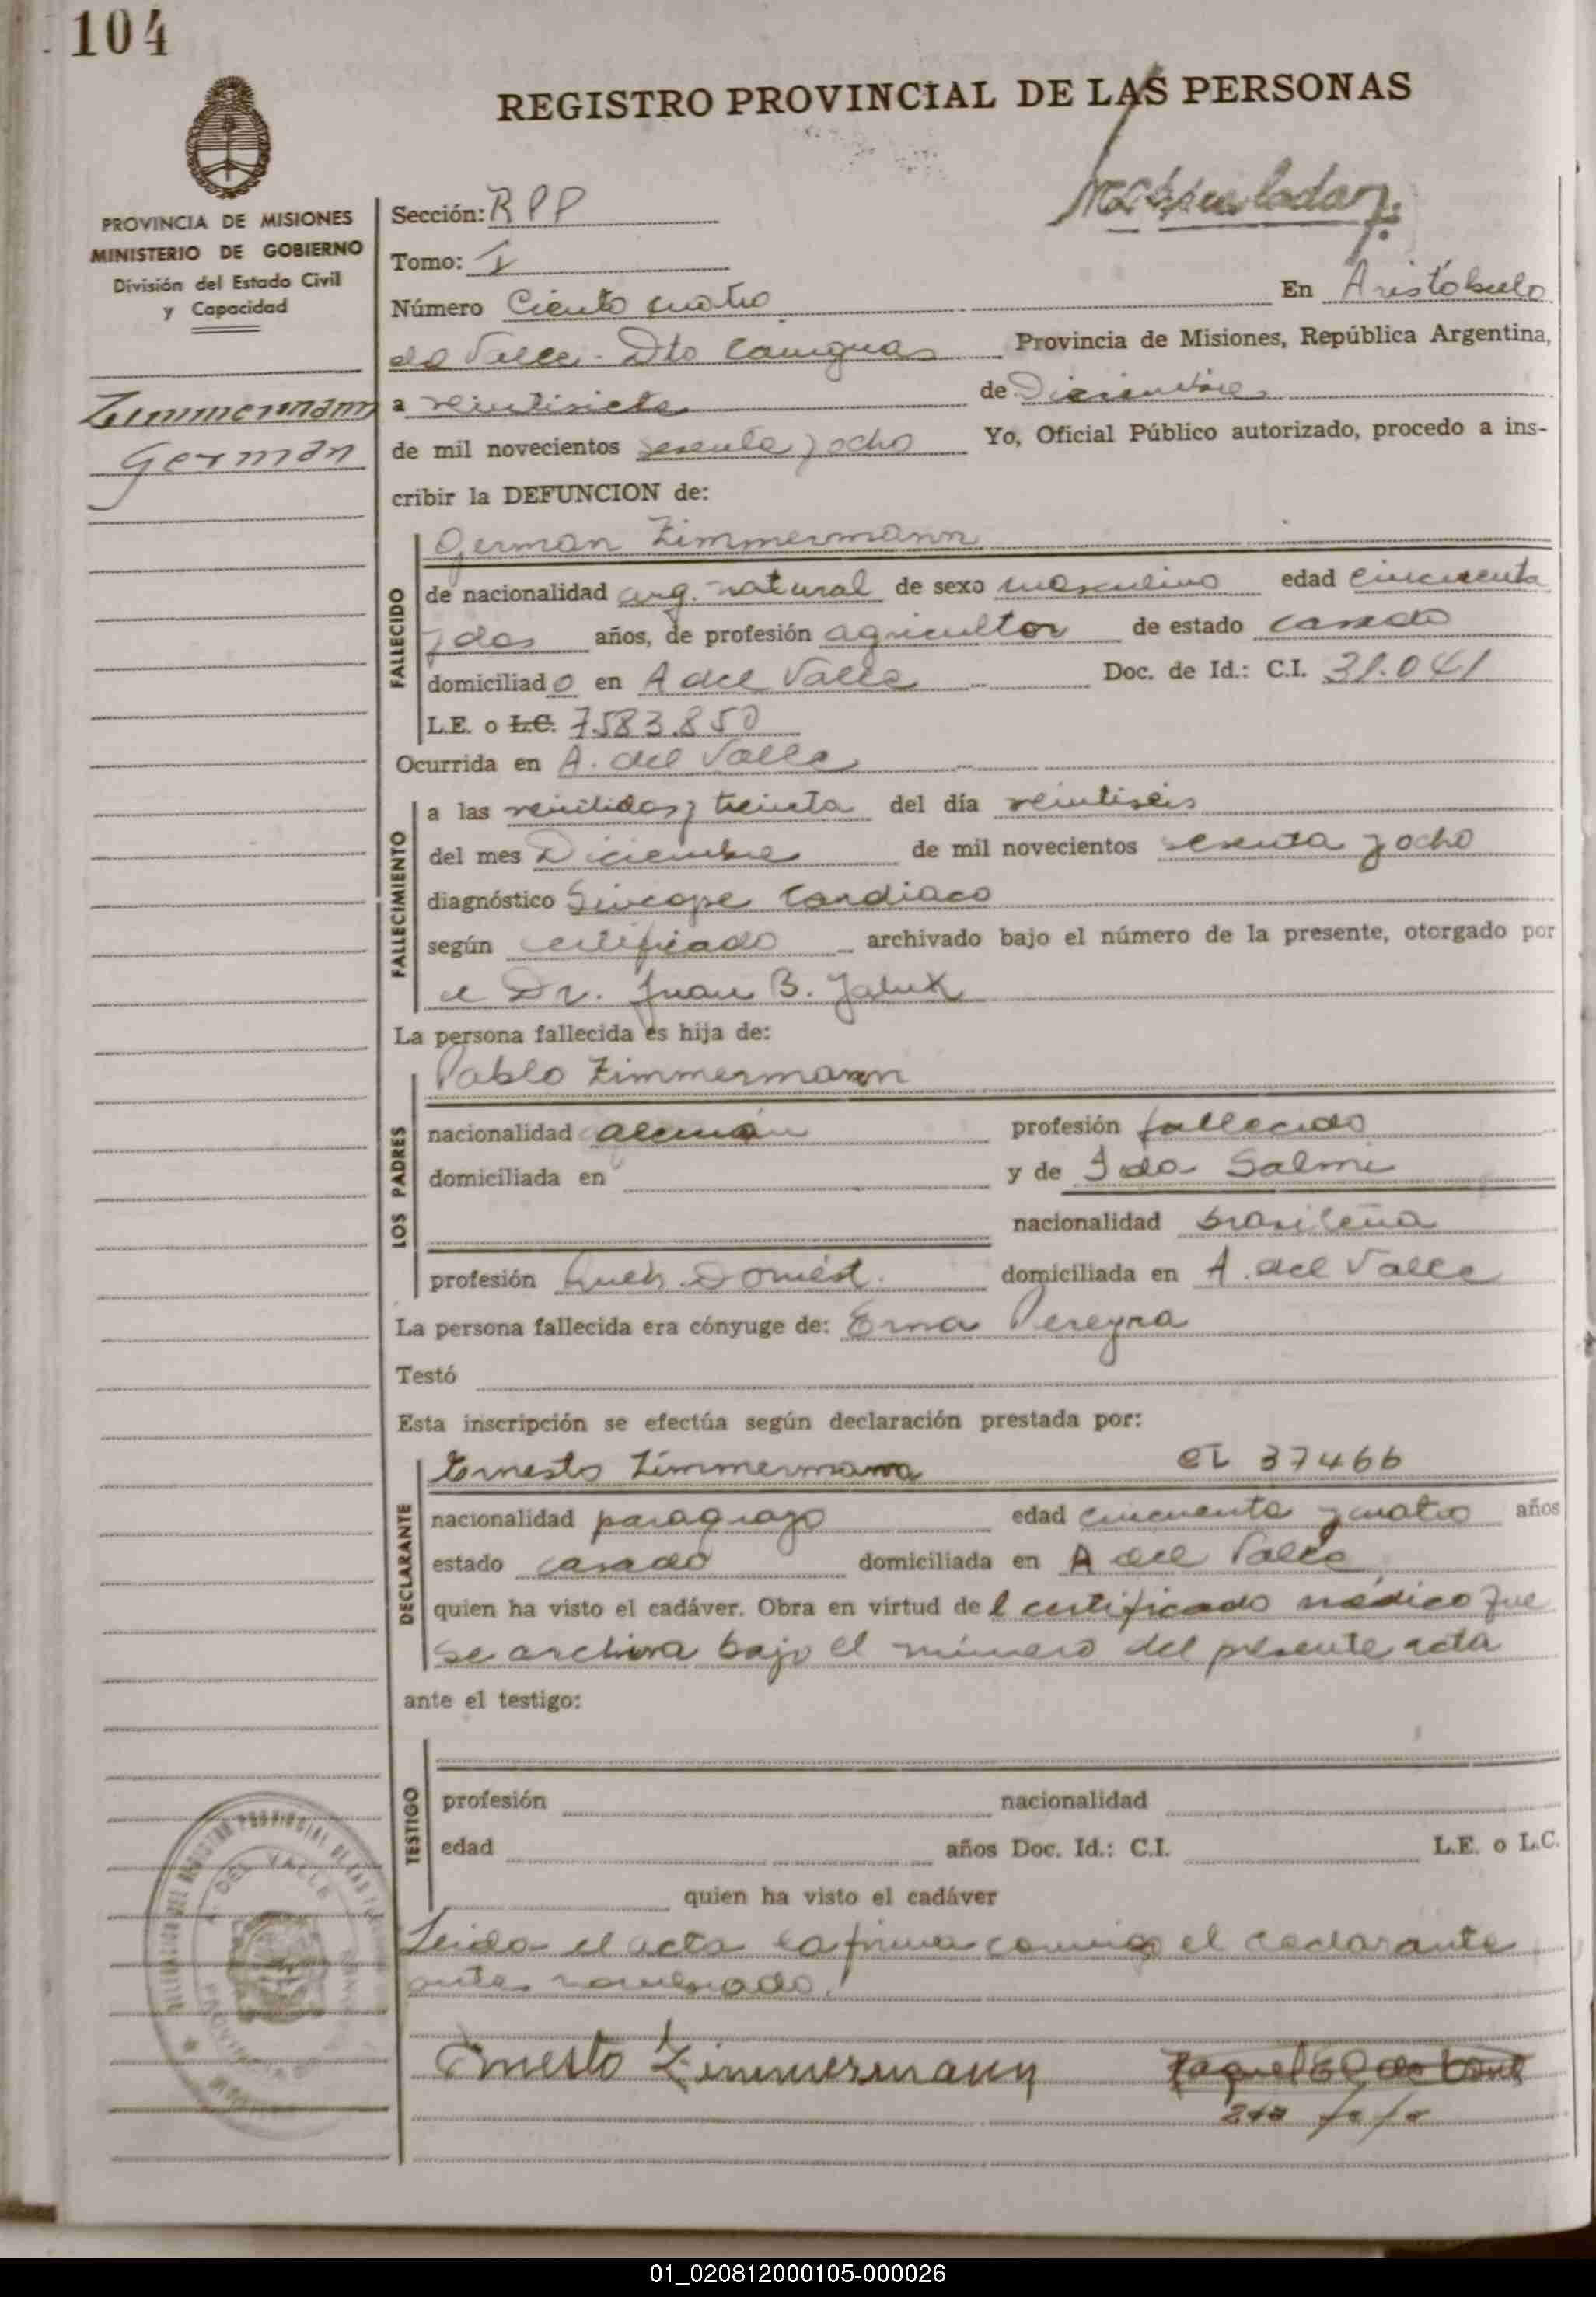 104
REGISTRO PROVINCIAL DE LAS PERSONAS
PROVINCIA DE MISIONES
MINISTERIO DE GOBIERNO
División del Estado Civil
y Capacidad
Zimmermann
Germán
Sección: RPP
Tomo: I
Número Ciento cuatro En Aristóbulo
del Valle - Dto Cainguas Provincia de Misiones, República Argentina,
a veintisiete de Diciembre
de mil novecientos sesenta y ocho Yo, Oficial Público autorizado, procedo a ins-
cribir la DEFUNCION de:
FALLECIDO
German Zimmermann
de nacionalidad arg. natural de sexo masculino edad cincuenta
y dos años, de profesión agricultor de estado casado
domiciliado en A del Valle Doc. de Id.: C.I. 31.041
L.E. o L.C. 7.583.850
Ocurrida en A. del Valle
FALLECIMIENTO
a las veintidos y treinta del día veintiseis
del mes Diciembre de mil novecientos sesenta y ocho
diagnóstico Sincope Cardiaco
según certificado archivado bajo el número de la presente, otorgado por
el Dr. Juan B.
La persona fallecida es hija de:
LOS PADRES
Pablo Zimmermann
nacionalidad alemán profesión fallecido
domiciliada en y de Ida Salmi
nacionalidad brasileña
profesión Queh. Domést. domiciliada en A. del Valle
La persona fallecida era cónyuge de: Erna Pereyra
Testó
Esta inscripción se efectúa según declaración prestada por:
DECLARANTE
Ernesto Zimmermann CI 37466
nacionalidad paraguayo edad cincuenta y cuatro años
estado casado domiciliada en A del Valle
quien ha visto el cadáver. Obra en virtud del certificado médico que
se archiva bajo el número del presente acta
ante el testigo:
TESTIGO
profesión nacionalidad
edad años Doc. Id.: C.I. L.E. o L.C.
quien ha visto el cadáver
Leida el acta la firma conmigo el declarante
antes nombrado.
Ernesto Zimmermann
A. DEL VALLE
01_020812000105-000026